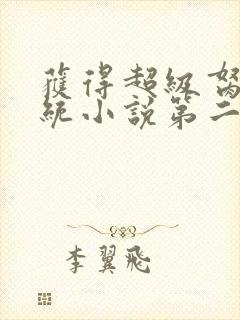 獲得超級
統小說第二
李翼飛